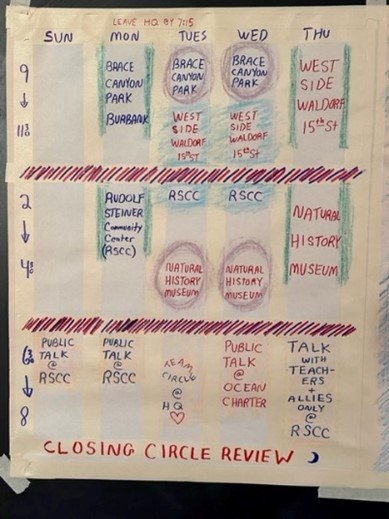 LEAVE HQ BY 7:15
SUN MON TUES WED THU
9
↓
11:30
BRACE
CANYON
PARK
BURBANK
BRACE
CANYON
PARK
WEST
SIDE
WALDORF
15th St
BRACE
CANYON
PARK
WEST
SIDE
WALDORF
15th St
WEST
SIDE
WALDORF
15th St
2
↓
4:30
RUDOLF
STEINER
Community
Center
(RSCC)
RSCC
NATURAL
HISTORY
MUSEUM
RSCC
NATURAL
HISTORY
MUSEUM
NATURAL
HISTORY
MUSEUM
6:30
↓
8
PUBLIC
TALK
@
RSCC
PUBLIC
TALK
@
RSCC
TEAM
CIRCLE
@
HQ
♡
PUBLIC
TALK
@
OCEAN
CHARTER
TALK
WITH
TEACH-
ERS
+
ALLIES
ONLY @
RSCC
CLOSING CIRCLE REVIEW